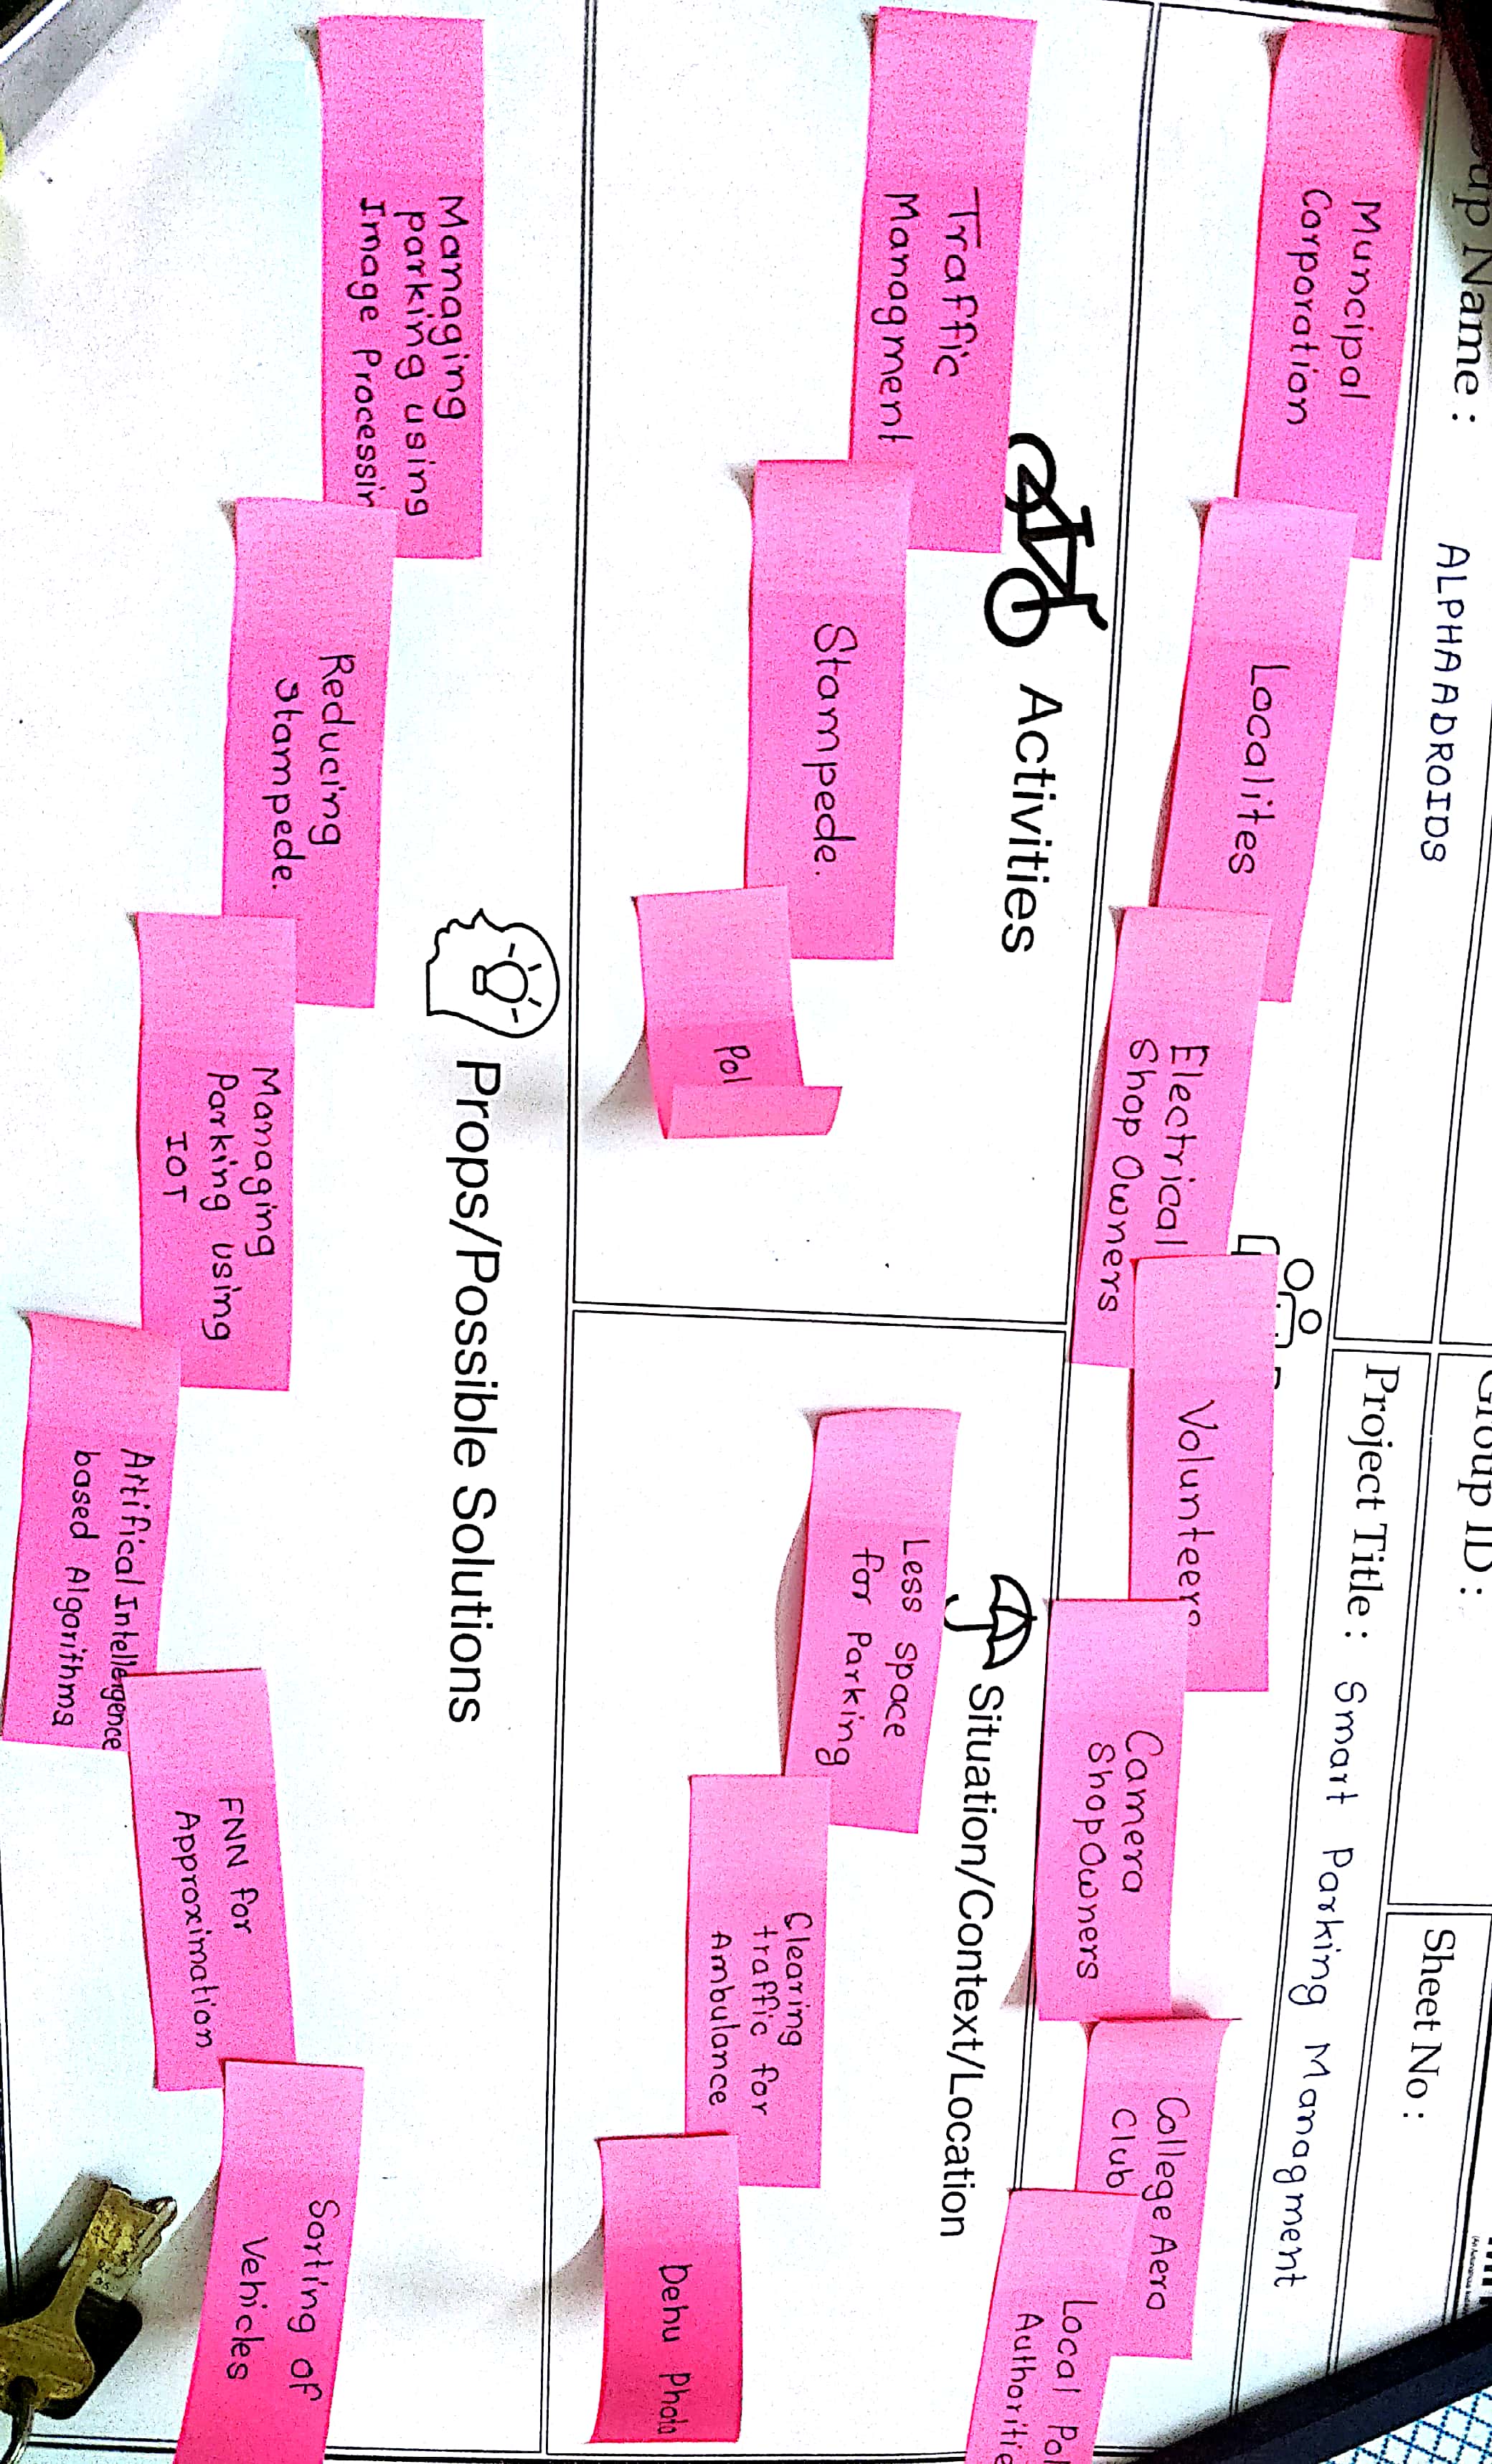 Name :
ALPHAADROIDS
Group ID :
Sheet No :
Project Title : Smart Parking Managment
Muncipal
Corporation
Localites
Electrical
Shop Owners
Volunteers
Camera
Shop Owners
College Aero
Club
Local Pol
Authoritie
Activities
Traffic
Managment
Stampede.
Pol
Situation/Context/Location
Less space
for Parking
Clearing
traffic for
Ambulance
Dehu Phata
Props/Possible Solutions
Managing
parking using
Image Processin
Reducing
stampede.
Managing
Parking using
IOT
Artifical Intellegence
based Algorithms
FNN for
Approximation
Sorting of
Vehicles